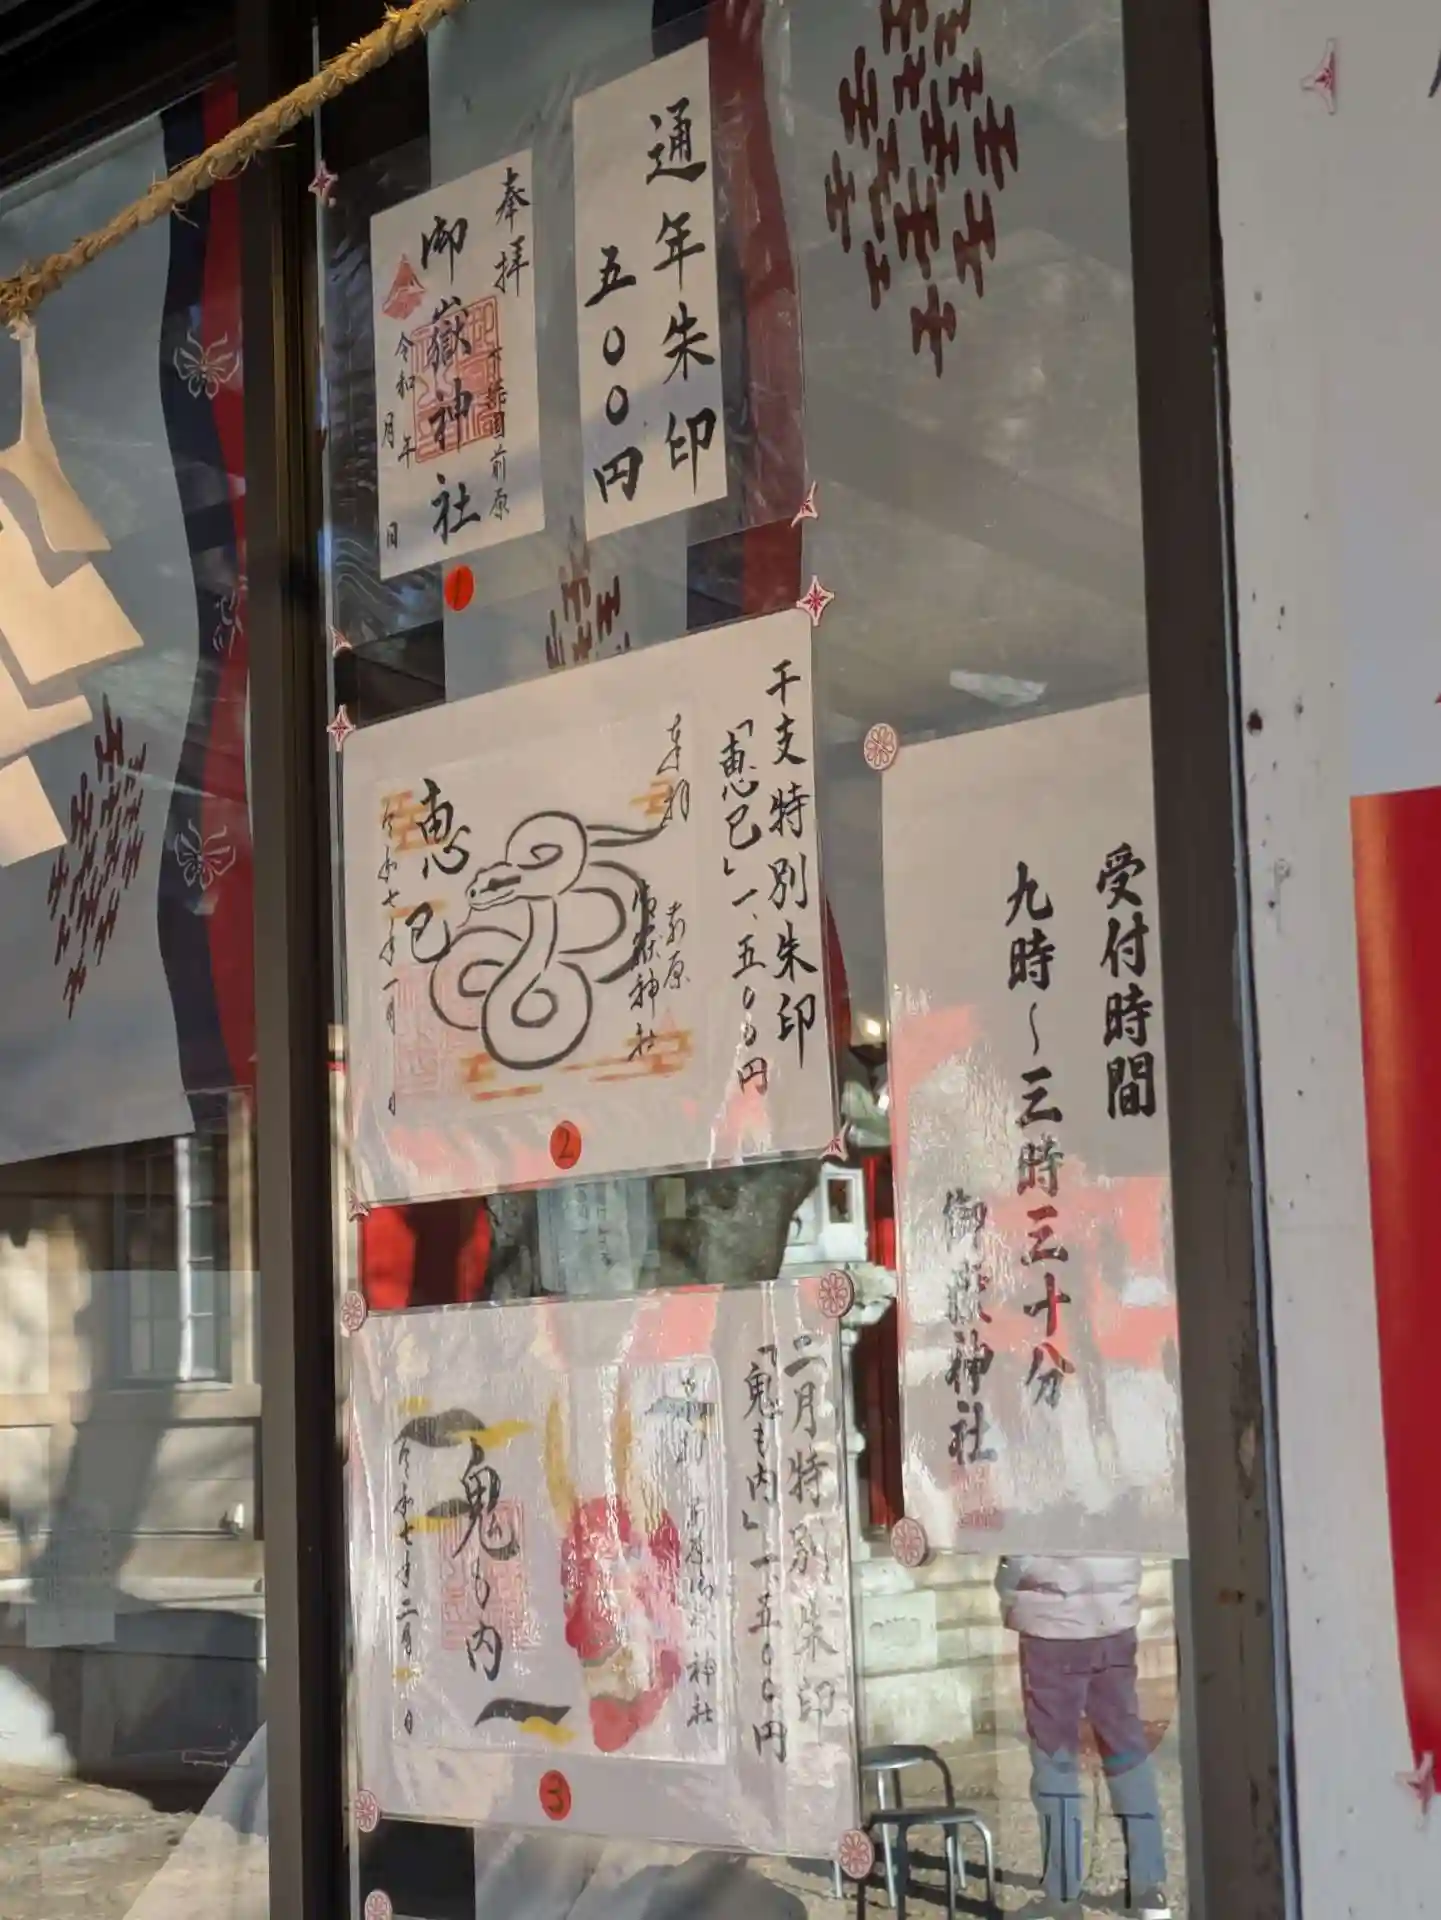 通年朱印
五〇〇円
奉拝
下総国前原
御嶽神社
令和 年
月 日
1
干支特別朱印
「恵巳」一、五〇〇円
奉拝
前原
御嶽神社
恵巳
令和七年一月 日
2
二月特別朱印
「鬼も内」一、五〇〇円
奉拝 前原御嶽神社
鬼も内
令和七年二月 日
3
受付時間
九時～三時三十分
御嶽神社